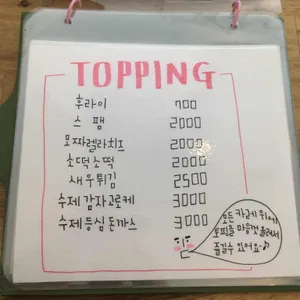 TOPPING
후라이 700
스팸 2000
모짜렐라치즈 2000
소떡소떡 2000
새우튀김 2500
수제 감자고로케 3000
수제 등심 돈까스 3000
모든 카레 위에
토핑을 마음껏 올려서
즐길수 있어요~♪